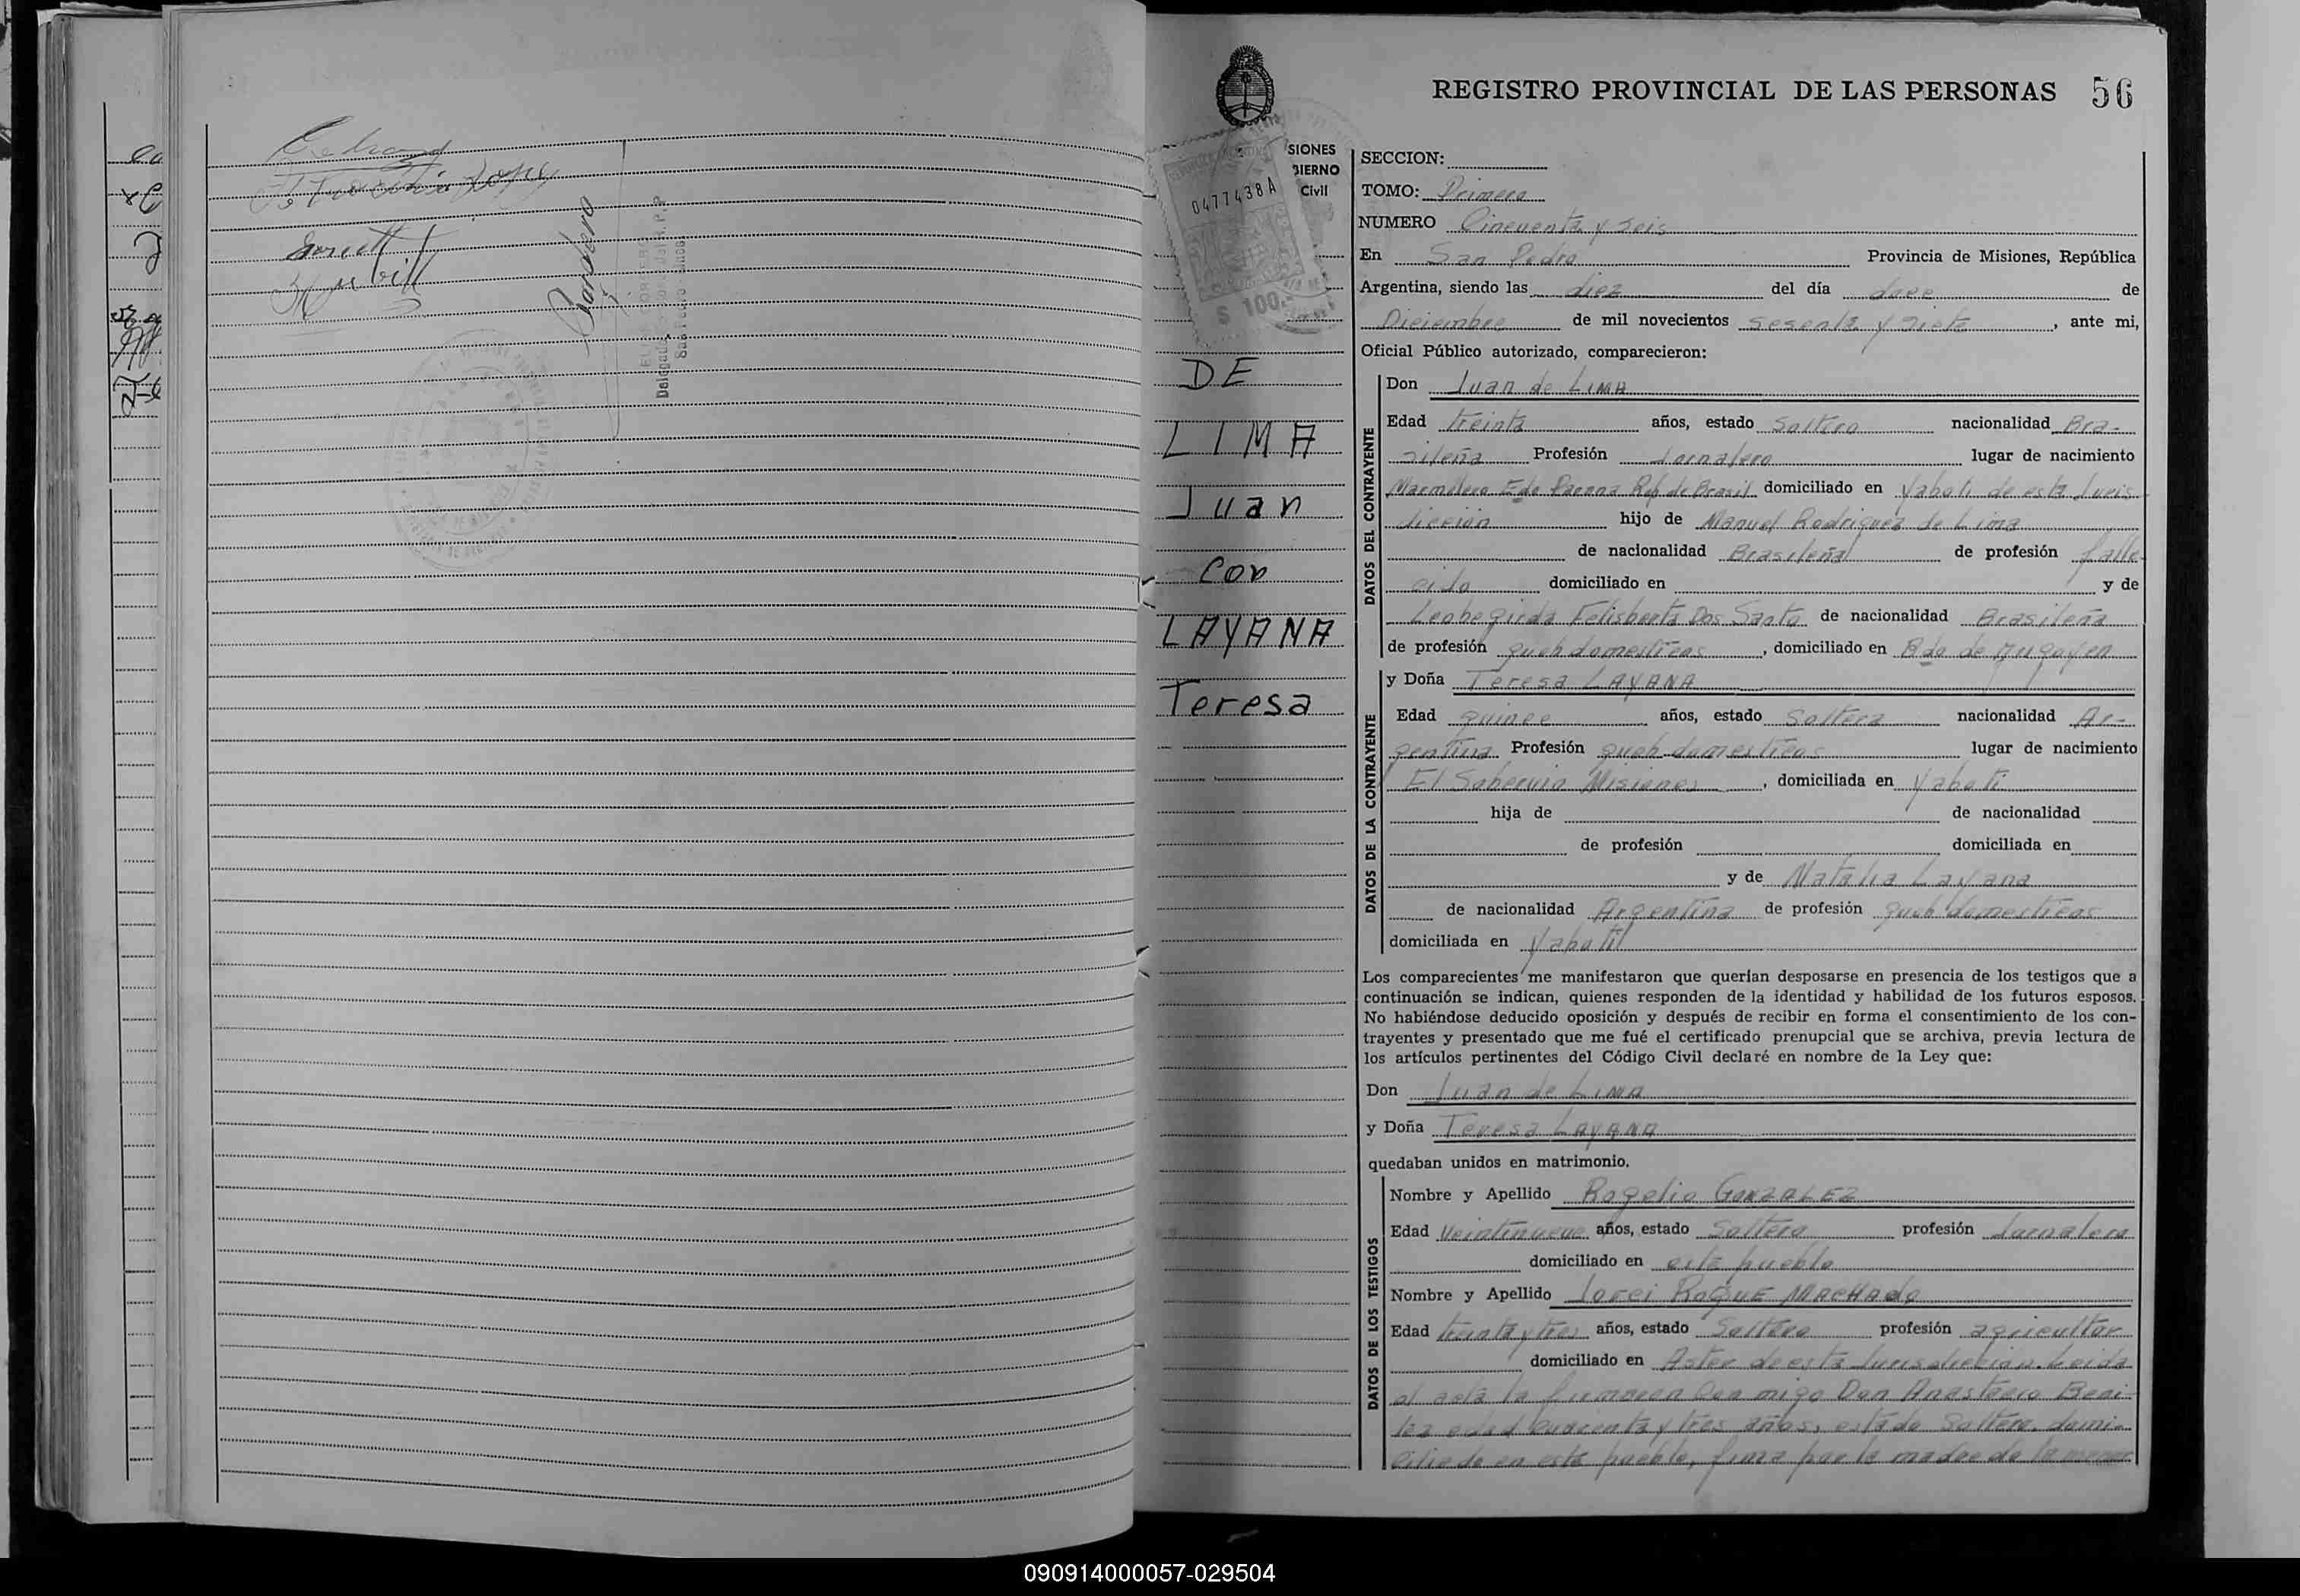 REGISTRO PROVINCIAL DE LAS PERSONAS 56
SIONES
BIERNO
Civil
0477438 A
$ 100
DE
LIMA
Juan
Con
LAYANA
Teresa
SECCION:
TOMO: Primero
NUMERO Cincuenta y seis
En San Pedro Provincia de Misiones, República
Argentina, siendo las diez del día doce de
Diciembre de mil novecientos sesenta y siete, ante mi,
Oficial Público autorizado, comparecieron:
DATOS DEL CONTRAYENTE
Don Juan de LIMA
Edad treinta años, estado Soltero nacionalidad Bra-
sileña Profesión Jornalero lugar de nacimiento
Marmelero Edo Parana Rep de Brasil domiciliado en Yaboti de esta Juris
dicción hijo de Manuel Rodriguez de Lima
de nacionalidad Brasileña de profesión falle-
cido domiciliado en y de
Felisberta Dos Santo de nacionalidad Brasileña
de profesión queh domesticos, domiciliado en Bdo de Irigoyen
DATOS DE LA CONTRAYENTE
y Doña Teresa LAYANA
Edad quince años, estado Soltera nacionalidad Ar-
gentina Profesión queh domesticos lugar de nacimiento
El Sobervio Misiones, domiciliada en Yaboti
hija de de nacionalidad
de profesión domiciliada en
y de Natalia Layana
de nacionalidad Argentina de profesión queh domesticos
domiciliada en Yaboti
Los comparecientes me manifestaron que querían desposarse en presencia de los testigos que a
continuación se indican, quienes responden de la identidad y habilidad de los futuros esposos.
No habiéndose deducido oposición y después de recibir en forma el consentimiento de los con-
trayentes y presentado que me fué el certificado prenupcial que se archiva, previa lectura de
los artículos pertinentes del Código Civil declaré en nombre de la Ley que:
Don Juan de LIMA
y Doña Teresa LAYANA
quedaban unidos en matrimonio.
DATOS DE LOS TESTIGOS
Nombre y Apellido Rogelio GONZALEZ
Edad Veintinueve años, estado Soltero profesión Jornalero
domiciliado en este pueblo
Nombre y Apellido Jorei ROQUE MACHADO
Edad treinta y tres años, estado Soltero profesión agricultor
domiciliado en Aster de esta Jurisdiccion. Leida
el acta la firmaron Con migo Don Anastacio Beni-
tez edad Cuarenta y tres años, estado Soltero, domi-
ciliado en este pueblo, firma por la madre de la menor
090914000057-029504